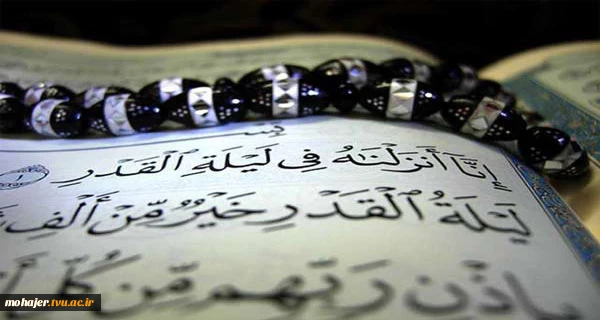 إِنَّا أَنزَلْنَٰهُ فِى لَيْلَةِ ٱلْقَدْرِ ١
لَيْلَةُ ٱلْقَدْرِ خَيْرٌ مِّنْ أَلْفِ
بِإِذْنِ رَبِّهِم مِّن كُلِّ
mohajer.tvu.ac.ir